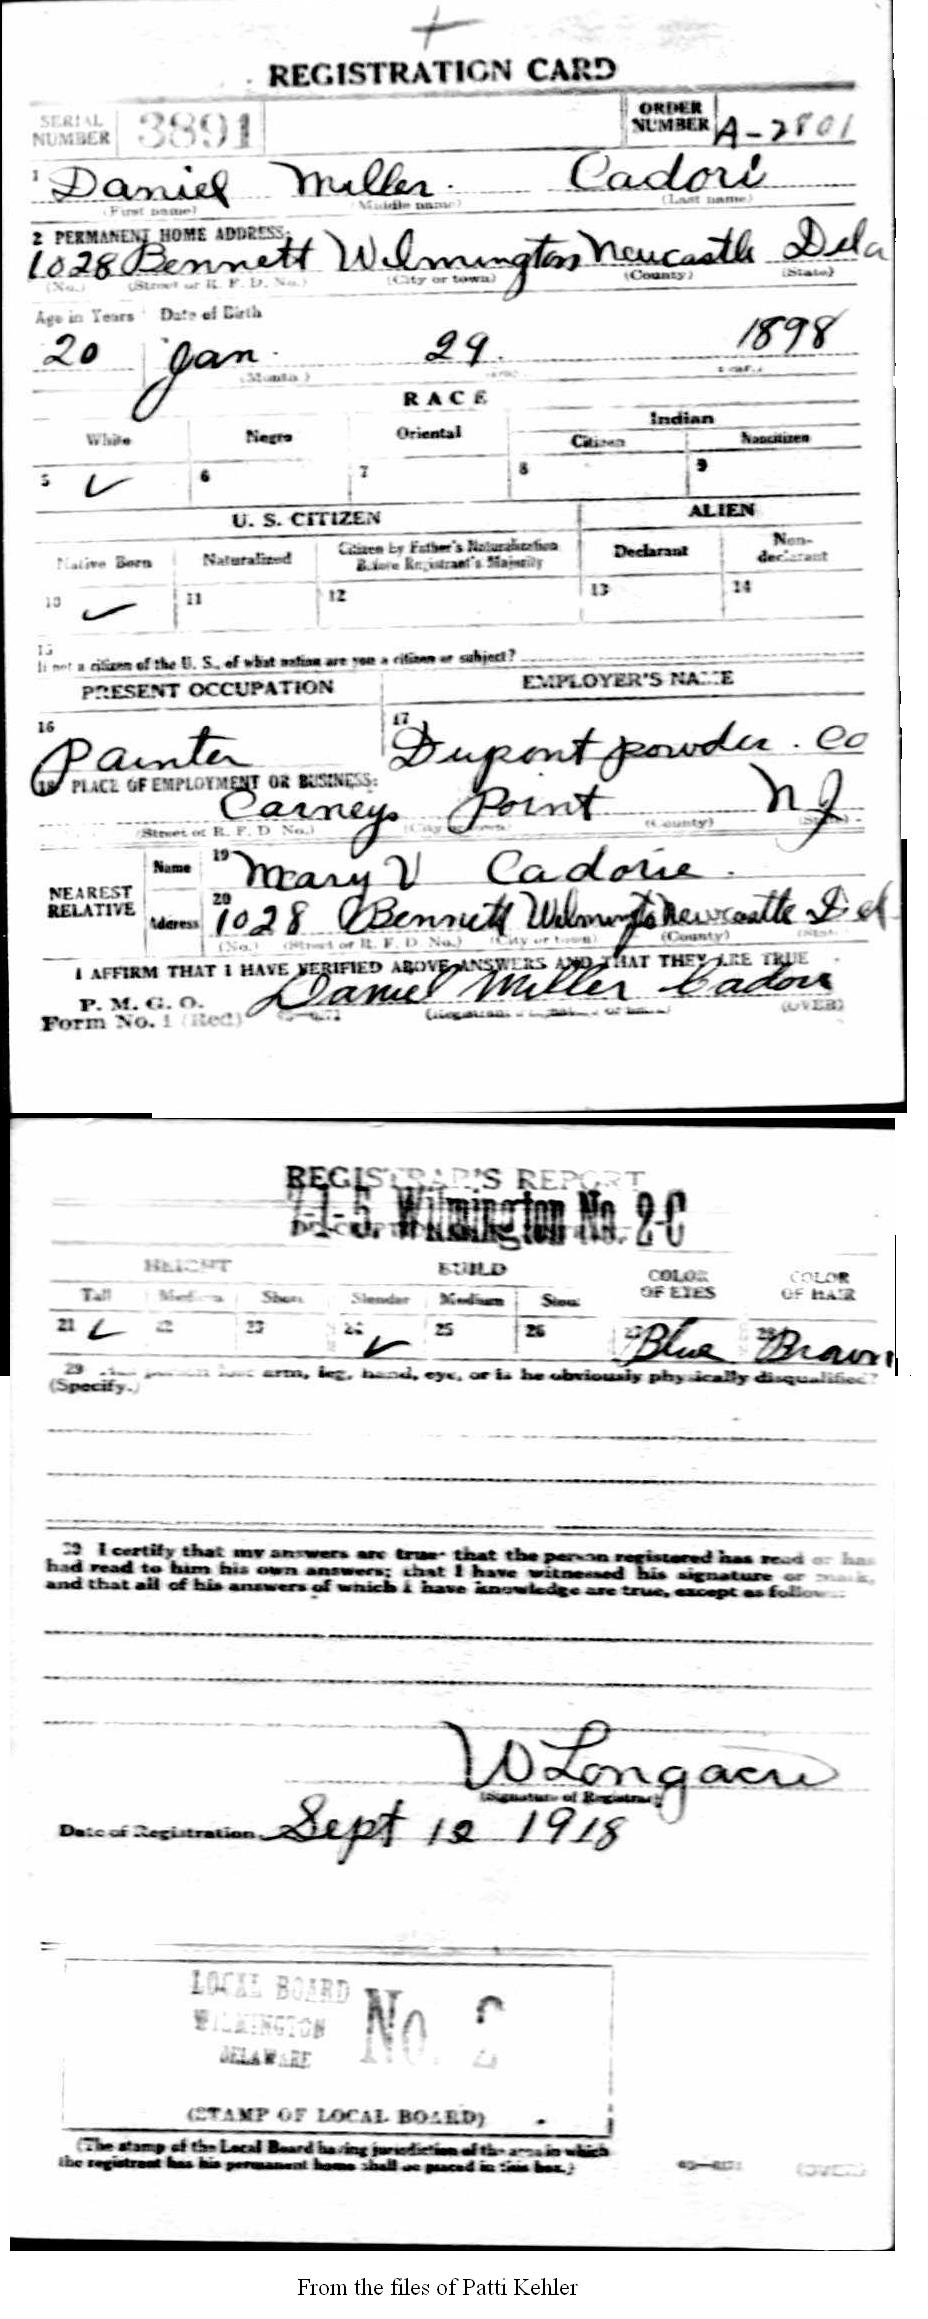 REGISTRATION CARD
SERIAL NUMBER 3891 ORDER NUMBER A-2801
1 Daniel Miller Cadori
(First name) (Middle name) (Last name)
2 PERMANENT HOME ADDRESS:
1028 Bennett Wilmington Newcastle Dela
(No.) (Street or R. F. D. No.) (City or town) (County) (State)
Age in Years Date of Birth
20 Jan. 29. 1898
(Month)
RACE
White Negro Oriental Indian
Citizen Noncitizen
5 ✓ 6 7 8 9
U. S. CITIZEN ALIEN
Native Born Naturalized Citizen by Father's Naturalization Before Registrant's Majority Declarant Non-declarant
10 ✓ 11 12 13 14
15
If not a citizen of the U. S., of what nation are you a citizen or subject?
PRESENT OCCUPATION EMPLOYER'S NAME
16 17
Painter Dupont powder. Co
18 PLACE OF EMPLOYMENT OR BUSINESS:
Carneys Point NJ
(Street or R. F. D No.) (City or town) (County) (State)
NEAREST RELATIVE Name 19 Mary V Cadorie.
Address 20 1028 Bennett Wilmington Newcastle Del
(No.) (Street or R. F. D. No.) (City or town) (County) (State)
I AFFIRM THAT I HAVE VERIFIED ABOVE ANSWERS AND THAT THEY ARE TRUE
P. M. G. O.
Form No. 1 (Red) Daniel Miller Cadori
(Registrant's signature or mark) (OVER)
REGISTRAR'S REPORT
7-1-5. Wilmington No. 2-C
HEIGHT BUILD COLOR OF EYES COLOR OF HAIR
Tall Medium Short Slender Medium Stout
21 ✓ 22 23 24 ✓ 25 26 27 Blue 28 Brown
29 person lost arm, leg, hand, eye, or is he obviously physically disqualified?
(Specify.)
30 I certify that my answers are true; that the person registered has read or has
had read to him his own answers; that I have witnessed his signature or mark,
and that all of his answers of which I have knowledge are true, except as follows:
W Longacre
(Signature of Registrar)
Date of Registration Sept 12 1918
LOCAL BOARD
WILMINGTON
DELAWARE
No. 2
(STAMP OF LOCAL BOARD)
(The stamp of the Local Board having jurisdiction of the area in which
the registrant has his permanent home shall be placed in this box.)
(OVER)
From the files of Patti Kehler